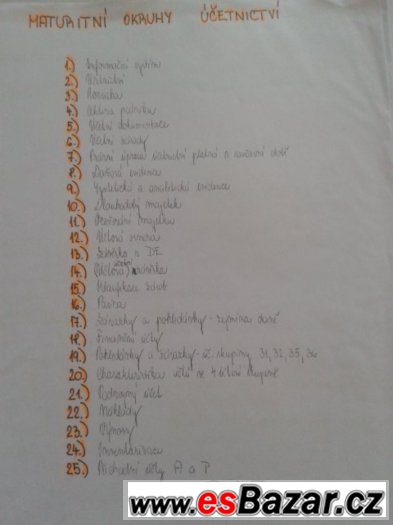 MATURITNÍ OKRUHY ÚČETNICTVÍ
1.) Informační systém
2.)
3.) Rozvaha
4.) aktiva pasiva
5.) Účetní dokumentace
6.) Účetní zásady
7.) Právní úprava účetnictví platná v současné době
8.) Daňová evidence
9.) Syntetická a analytická evidence
10.) Dlouhodobý majetek
11.) Oceňování majetku
12.) Účtová osnova
13.) v DE
14.)
15.) Klasifikace zásob
16.)
17.) Závazky a pohledávky - zejména daně
18.) Finanční účty
19.) Pohledávky a závazky - úč. skupiny 31, 32, 35, 36
20.) Charakteristika účtů ve 4 účtové skupině
21.) Podrozvaž účet
22.) Náklady
23.) Výnosy
24.) Inventarizace
25.) Přechodné účty A a P
www.esBazar.cz